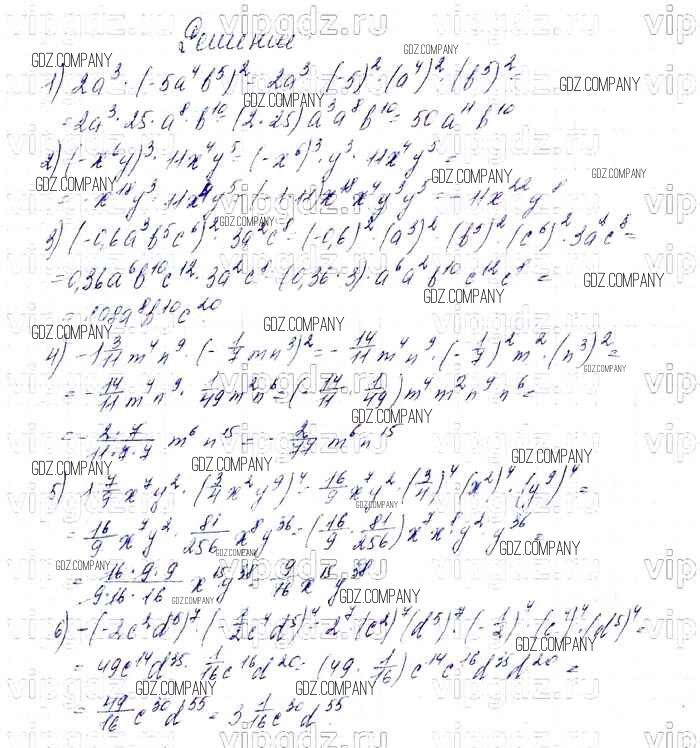 Решение
1) 2a³·(-5a⁴b⁵)² = 2a³·(-5)²·(a⁴)²·(b⁵)² =
= 2a³·25·a⁸·b¹⁰ = (2·25)a³a⁸b¹⁰ = 50a¹¹b¹⁰
2) (-x⁶y)³·11x⁴y⁵ = (-x⁶)³·y³·11x⁴y⁵ =
= -x¹⁸y³·11x⁴y⁵ = (-1·11)x¹⁸x⁴y³y⁵ = -11x²²y⁸
3) (-0,6a³b⁵c⁶)²·3a²c⁸ = (-0,6)²·(a³)²·(b⁵)²·(c⁶)²·3a²c⁸ =
= 0,36a⁶b¹⁰c¹²·3a²c⁸ = (0,36·3)·a⁶a²b¹⁰c¹²c⁸ =
= 1,08a⁸b¹⁰c²⁰.
4) -1 3/11 m⁴n⁹·(-1/7 mn³)² = -14/11 m⁴n⁹·(-1/7)²m²·(n³)² =
= -14/11 m⁴n⁹·1/49 m²n⁶ = (-14/11·1/49)m⁴m²n⁹n⁶ =
= -2·7/11·7·7 m⁶n¹⁵ = -2/77 m⁶n¹⁵
5) 1 7/9 x⁷y²·(3/4 x²y⁹)⁴ = 16/9 x⁷y²·(3/4)⁴·(x²)⁴·(y⁹)⁴ =
= 16/9 x⁷y²·81/256 x⁸y³⁶ = (16/9·81/256)x⁷·x⁸·y²y³⁶ =
= 16·9·9/9·16·16 x¹⁵y³⁸ = 9/16 x¹⁵y³⁸
6) -(-2c²d⁵)⁷·(-1/2c⁴d⁵)⁴ = 2⁷·(c²)⁷(d⁵)⁷·(-1/2)⁴·(c⁴)⁴·(d⁵)⁴ =
= 49c¹⁴d³⁵·1/16c¹⁶d²⁰ = (49·1/16)c¹⁴c¹⁶d³⁵d²⁰ =
= 49/16 c³⁰d⁵⁵ = 3 1/16 c³⁰d⁵⁵.